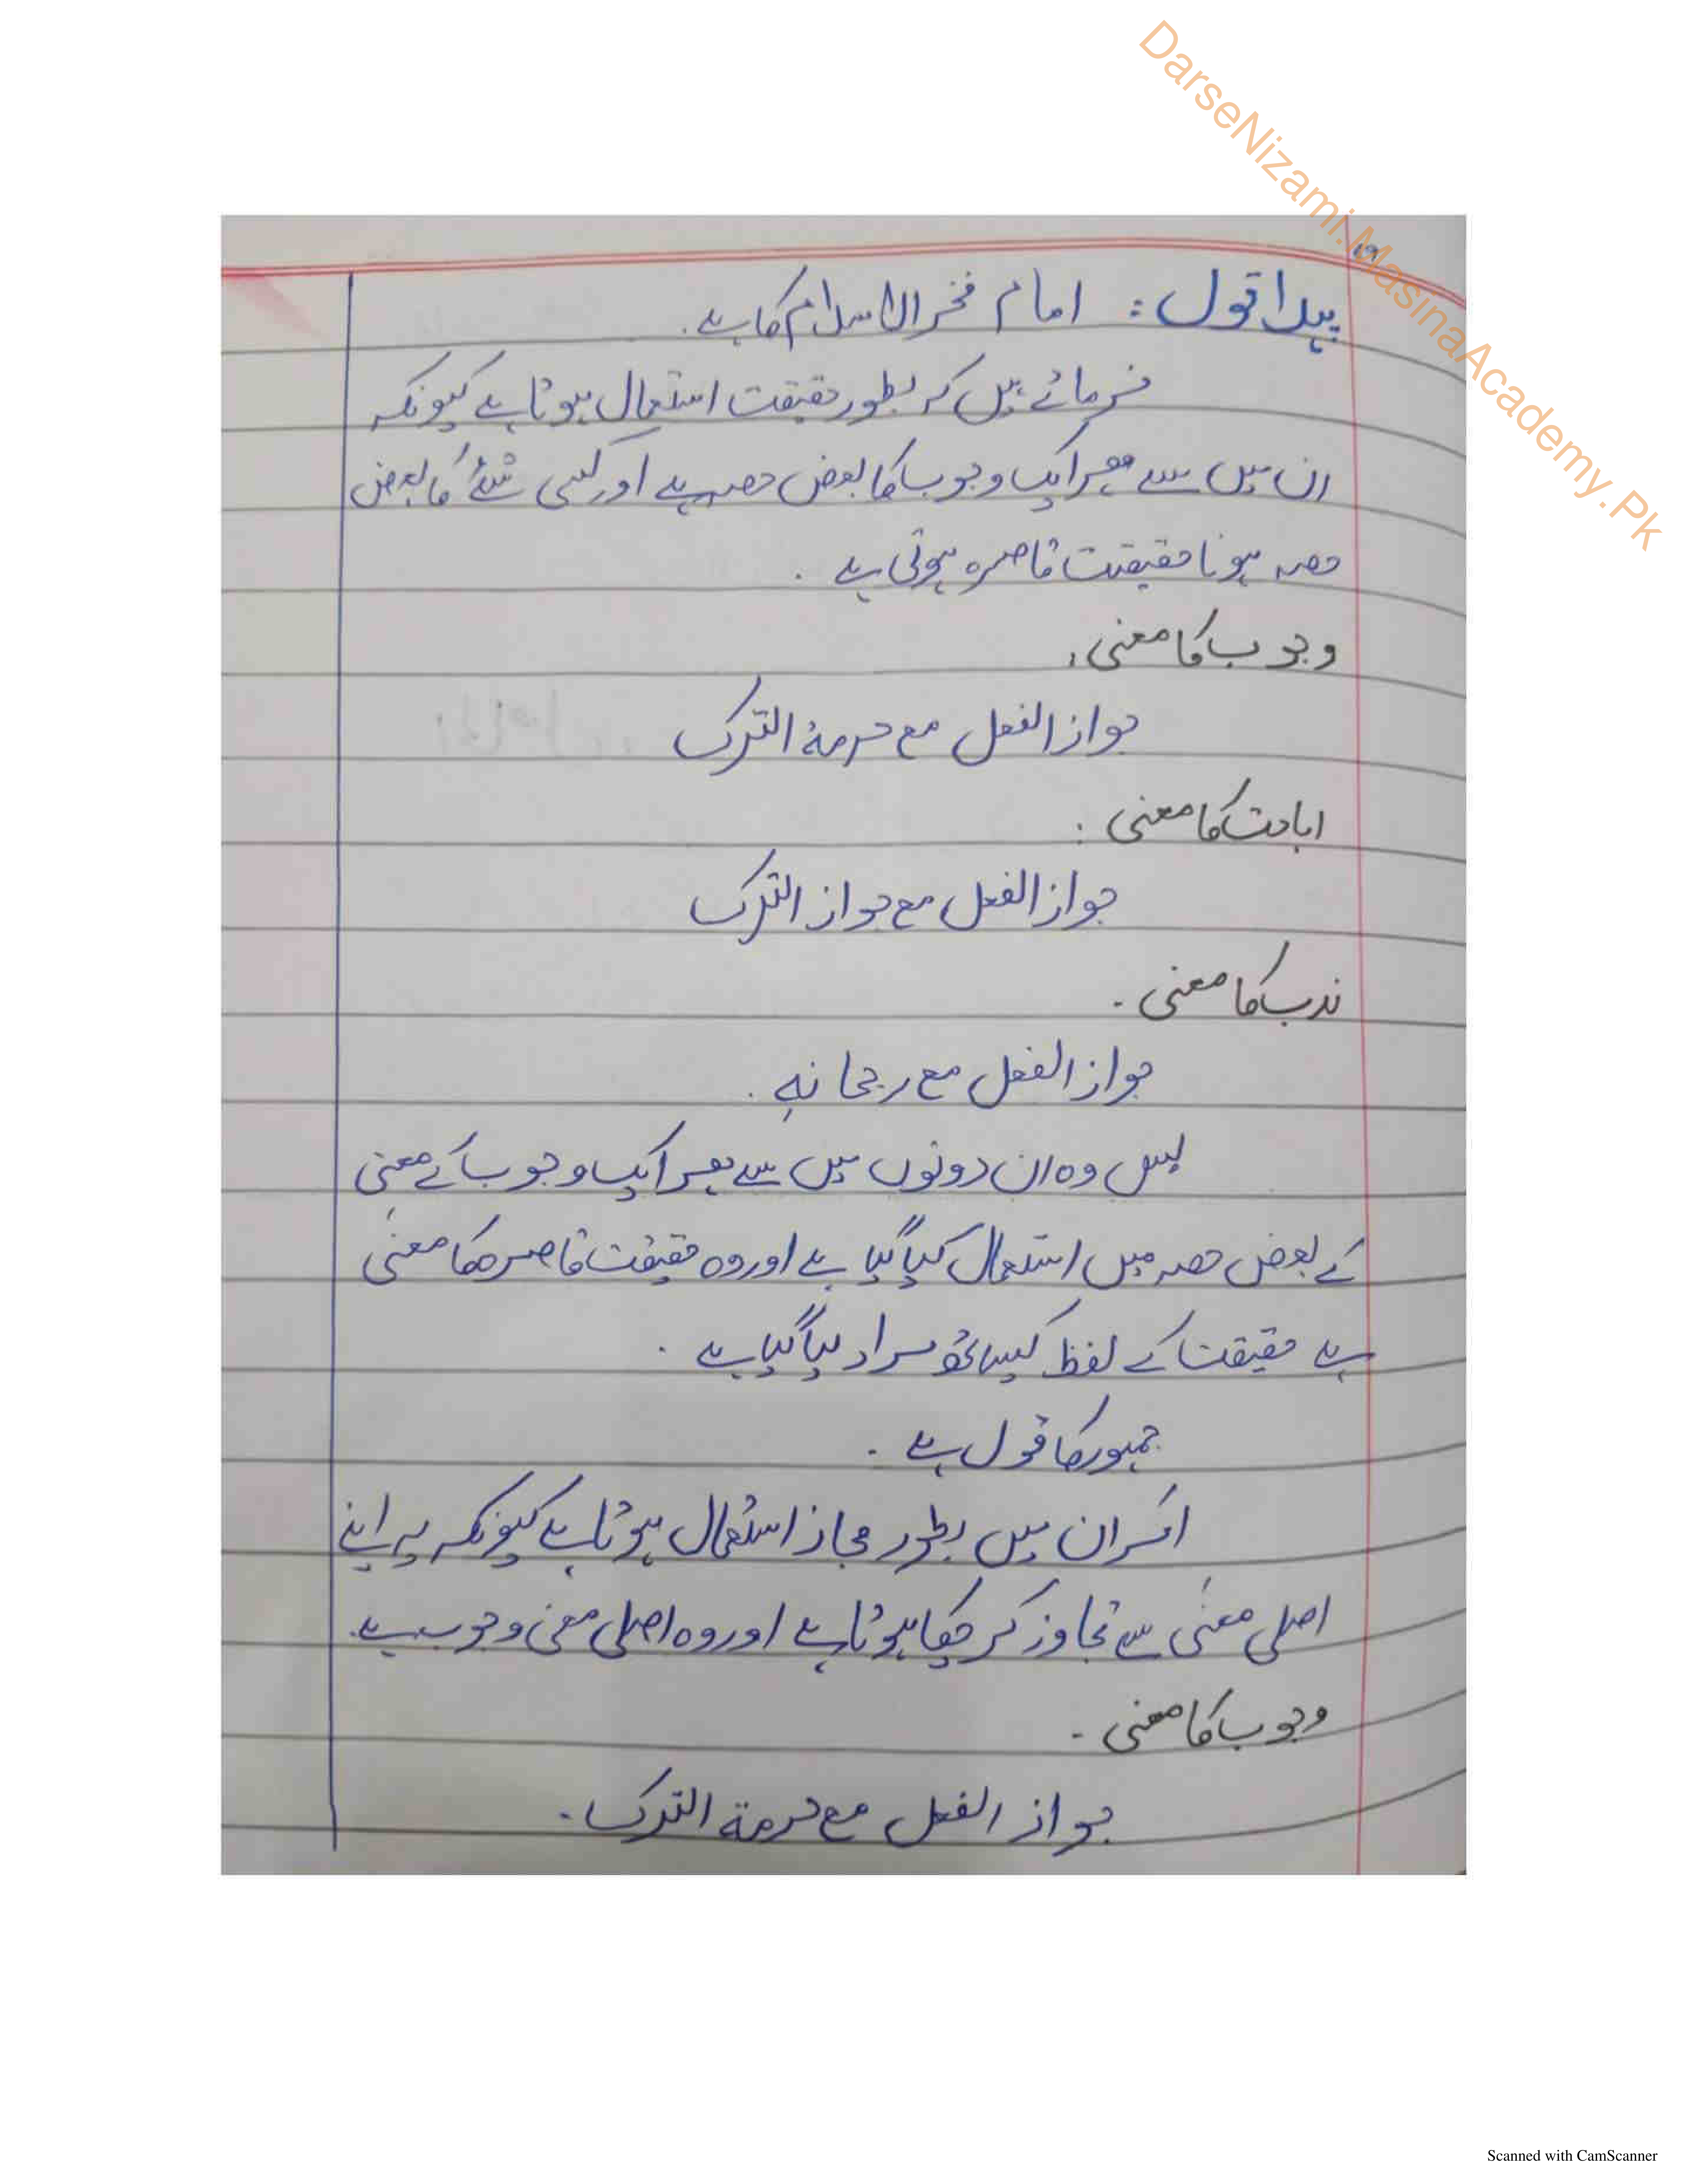 DarseNizami.MasinaAcademy.Pk
پہلا قول: امام فخر الاسلام کا ہے۔
فرماتے ہیں کہ بطور حقیقت استعمال ہوتا ہے کیونکہ
ان میں سے ہر ایک وجوب کا بعض حصہ ہے اور کسی شئ کا بعض
حصہ ہونا حقیقت قاصرہ ہوتی ہے۔
وجوب کا معنی:
جواز الفعل مع حرمۃ الترک
اباحت کا معنی:
جواز الفعل مع جواز الترک
ندب کا معنی۔
جواز الفعل مع رجحانہ۔
پس وہ ان دونوں میں سے ہر ایک وجوب کے معنی
کے بعض حصہ میں استعمال کیا گیا ہے اور وہ حقیقت قاصرہ کا معنی
ہے حقیقت کے لفظ کیساتھ مراد لیا گیا ہے۔
جمہور کا قول ہے۔
امر ان میں بطور مجاز استعمال ہوتا ہے کیونکہ یہ اپنے
اصلی معنی سے تجاوز کر چکا ہوتا ہے اور وہ اصلی معنی وجوب ہے۔
وجوب کا معنی۔
جواز الفعل مع حرمۃ الترک۔
Scanned with CamScanner